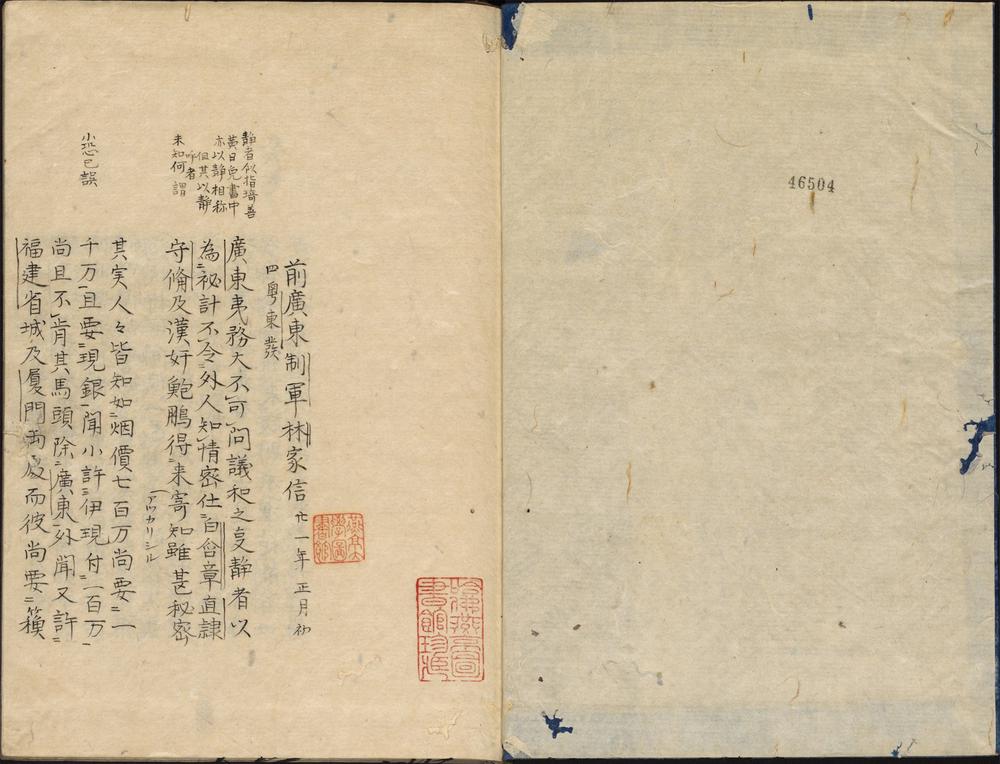 46504
静者似指琦善
黄日免書中
亦以静相称
但其以静
呼者
未知何謂
小恐已誤
前廣東制軍林家信 廿一年 正月初
四粤東發
廣東夷務大不可问議和之㕝静者以
為秘計不令外人知情密仕白含章直隷
守俻及漢奸鮑鵬得来寄知雖甚秘密
アツカリシル
其实人々皆知如烟價七百万尚要一
千万且要現銀聞小許伊現付一百万
尚且不肯其馬頭除廣東外聞又許
福建省城及厦門両處而彼尚要